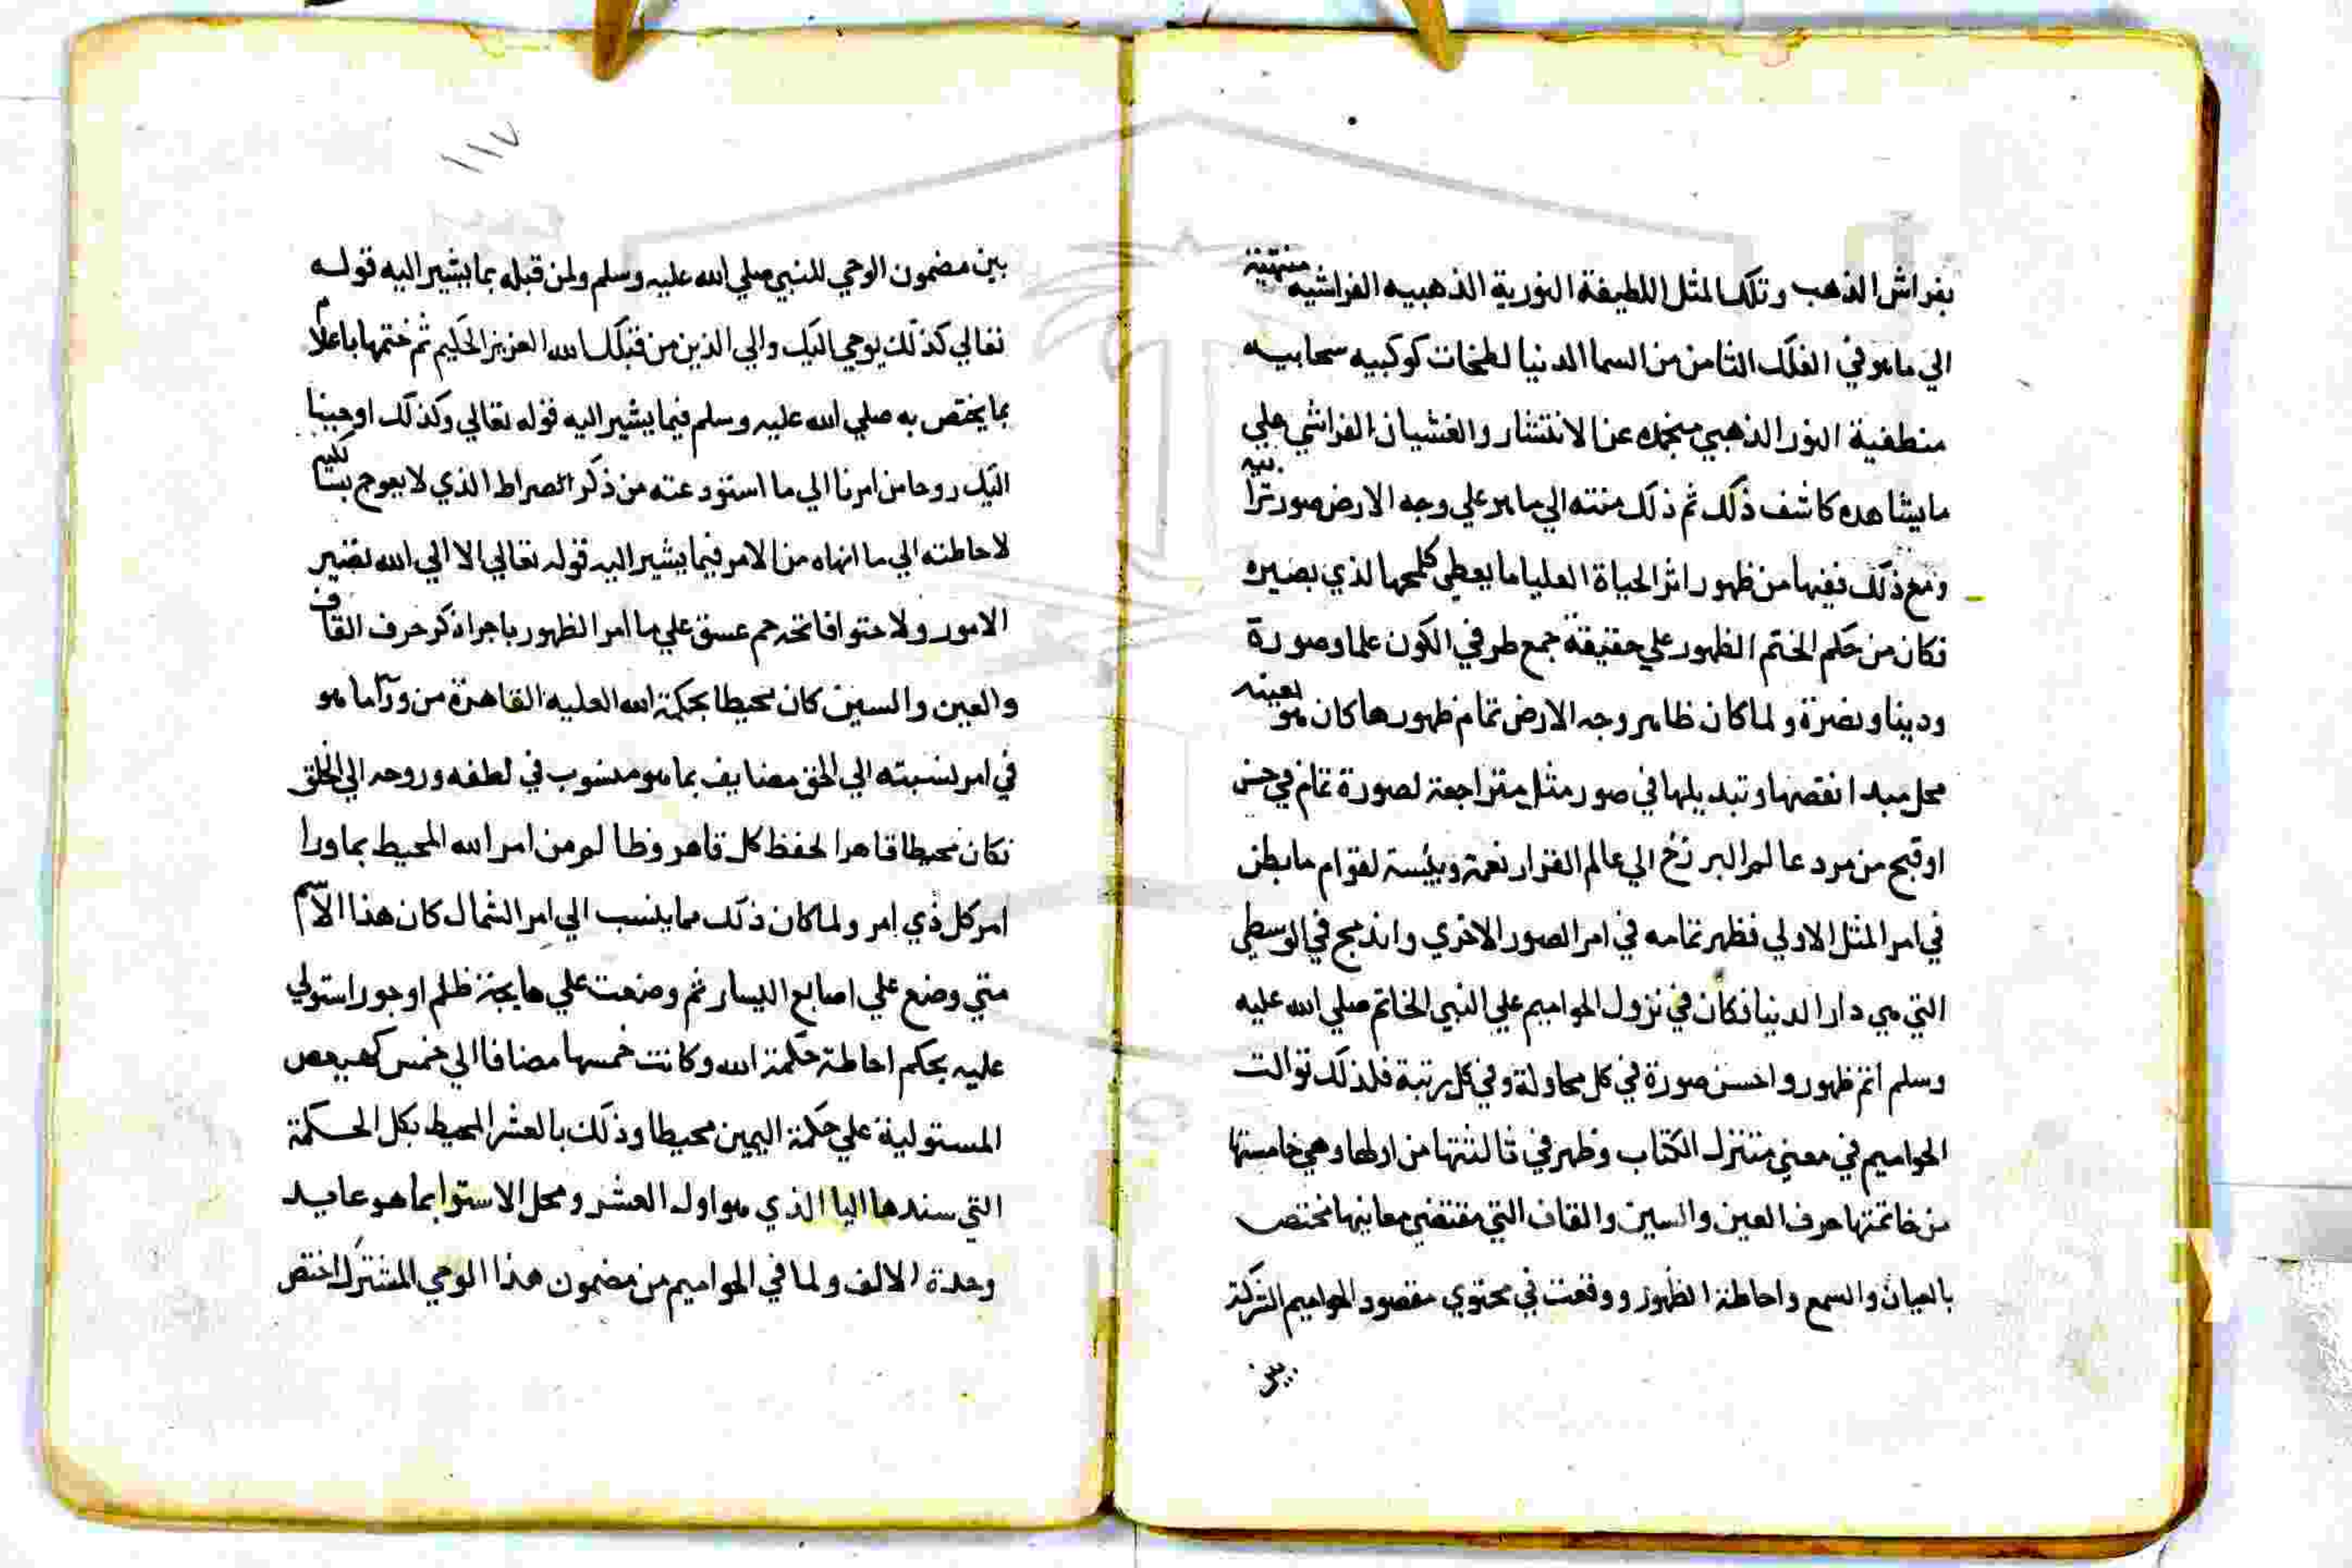 بفراش الذهب وتلك المثل اللطيفة النورية الذهبيه الفراشيه منتهية
الي ما هو في الفلك الثامن من السما الدنيا لطخات كوكبيه سحابيه
منطفية النور الذهبي منجمده عن الانتشار والغشيان الفراشي علي
ما يشاهده كاشف ذلك ثم ذلك منته الي ما هو علي وجه الارض صور ترابيه
ومع ذلك ففيها من ظهور اثر الحياة العليا ما يعطي كلمحها لذي بصيره
فكان من حكم الختم الظهور علي حقيقة جمع طرفي الكون علما وصورة
ودينا ونضرة ولما كان ظاهر وجه الارض تمام ظهورها كان هو بعينه
محل مبدا نقصها وتبديلها في صور مثل متراجعة لصورة تمام في حسن
او قبح من مرد عالم البرزخ الي عالم القرار نعمة وبئيسة لقوام ما بطن
في امر المثل الاولي فظهر تمامه في امر الصور الاخري واندمج في الوسطي
التي هي دار الدنيا فكان في نزول الحواميم علي النبي الخاتم صلي الله عليه
وسلم اتم ظهور واحسن صورة في كل محاولة وفي كل رتبة فلذلك توالت
الحواميم في معني متنزل الكتاب وظهر في ثالثتها من اولها وهي خامستها
من خاتمتها حرف العين والسين والقاف التي مقتضي معانيها مختص
بالعيان والسمع واحاطة الظهور ووقعت في محتوي مقصود الحواميم الشركة
بين
١١٧
بين مضمون الوحي للنبي صلي الله عليه وسلم ولمن قبله بما يشير اليه قوله
تعالي كذلك يوحي اليك والي الذين من قبلك الله العزيز الحكيم ثم ختمها باعلام
بما يختص به صلي الله عليه وسلم فيما يشير اليه قوله تعالي وكذلك اوحينا
اليك روحا من امرنا الي ما استودعته من ذكر الصراط الذي لا يعوج بسالكيه
لاحاطته الي ما انهاه من الامر فيما يشير اليه قوله تعالي الا الي الله تصير
الامور ولاحتوا فاتحة حم عسق علي ما امر الظهور باجرا ذكر حرف القاف
والعين والسين كان محيطا بحكمة الله العليه القاهرة من ورآ ما هو
في امر نسبته الي الحق مضايف بما هو منسوب في لطفه وروحه الي الخلق
فكان محيطا قاهرا لحفظ كل قاهر وظالم من امر الله المحيط بما ورا
امر كل ذي امر ولما كان ذلك مما ينسب الي امر الشمال كان هذا الاسم
متي وضع علي اصابع اليسار ثم وضعت علي هايجة ظلم او جور استولي
عليه بحكم احاطة حكمة الله وكانت خمسها مضافا الي خمس كهيعص
المستولية علي حكمة اليمين محيطا وذلك بالعشر المحيط بكل الحكمة
التي سندها اليا الذي هو اول العشر ومحل الاستوا بما هو عايد
وحدة الالف ولما في الحواميم من مضمون هذا الوحي المشترك اختص